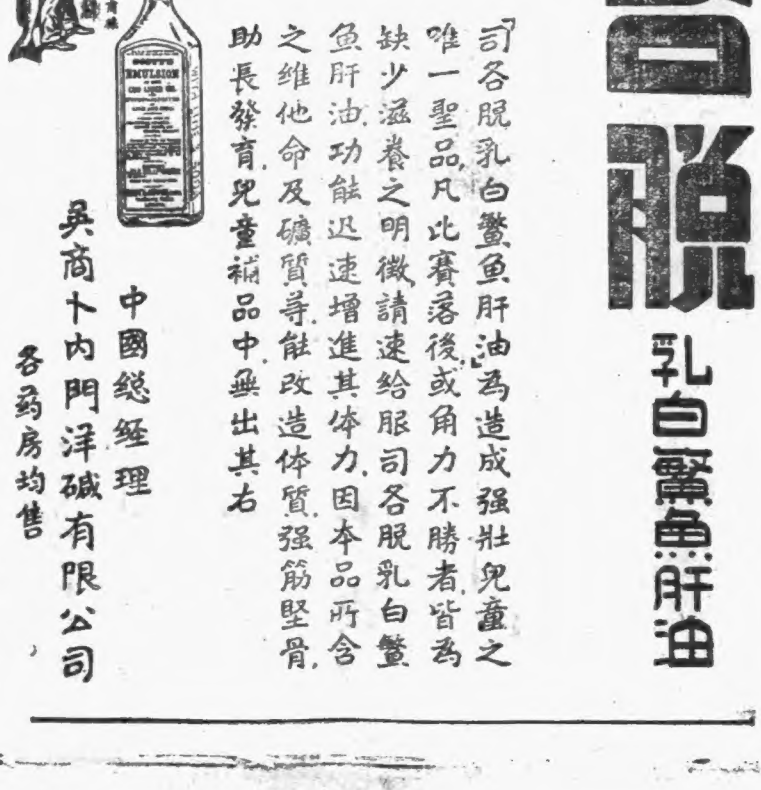 脱
乳白鱉魚肝油
「司各脱乳白鱉魚肝油」為造成强壯兒童之
唯一聖品,凡比賽落後,或角力不勝者,皆為
缺少滋養之明徵,請速給服司各脱乳白鱉
魚肝油,功能迅速增進其体力,因本品所含
之维他命及礦質等,能改造体質,强筋堅骨,
助長發育,兒童補品中,無出其右
SCOTT'S
EMULSION
COD LIVER OIL
中國総经理
英商卜内門洋碱有限公司
各药房均售